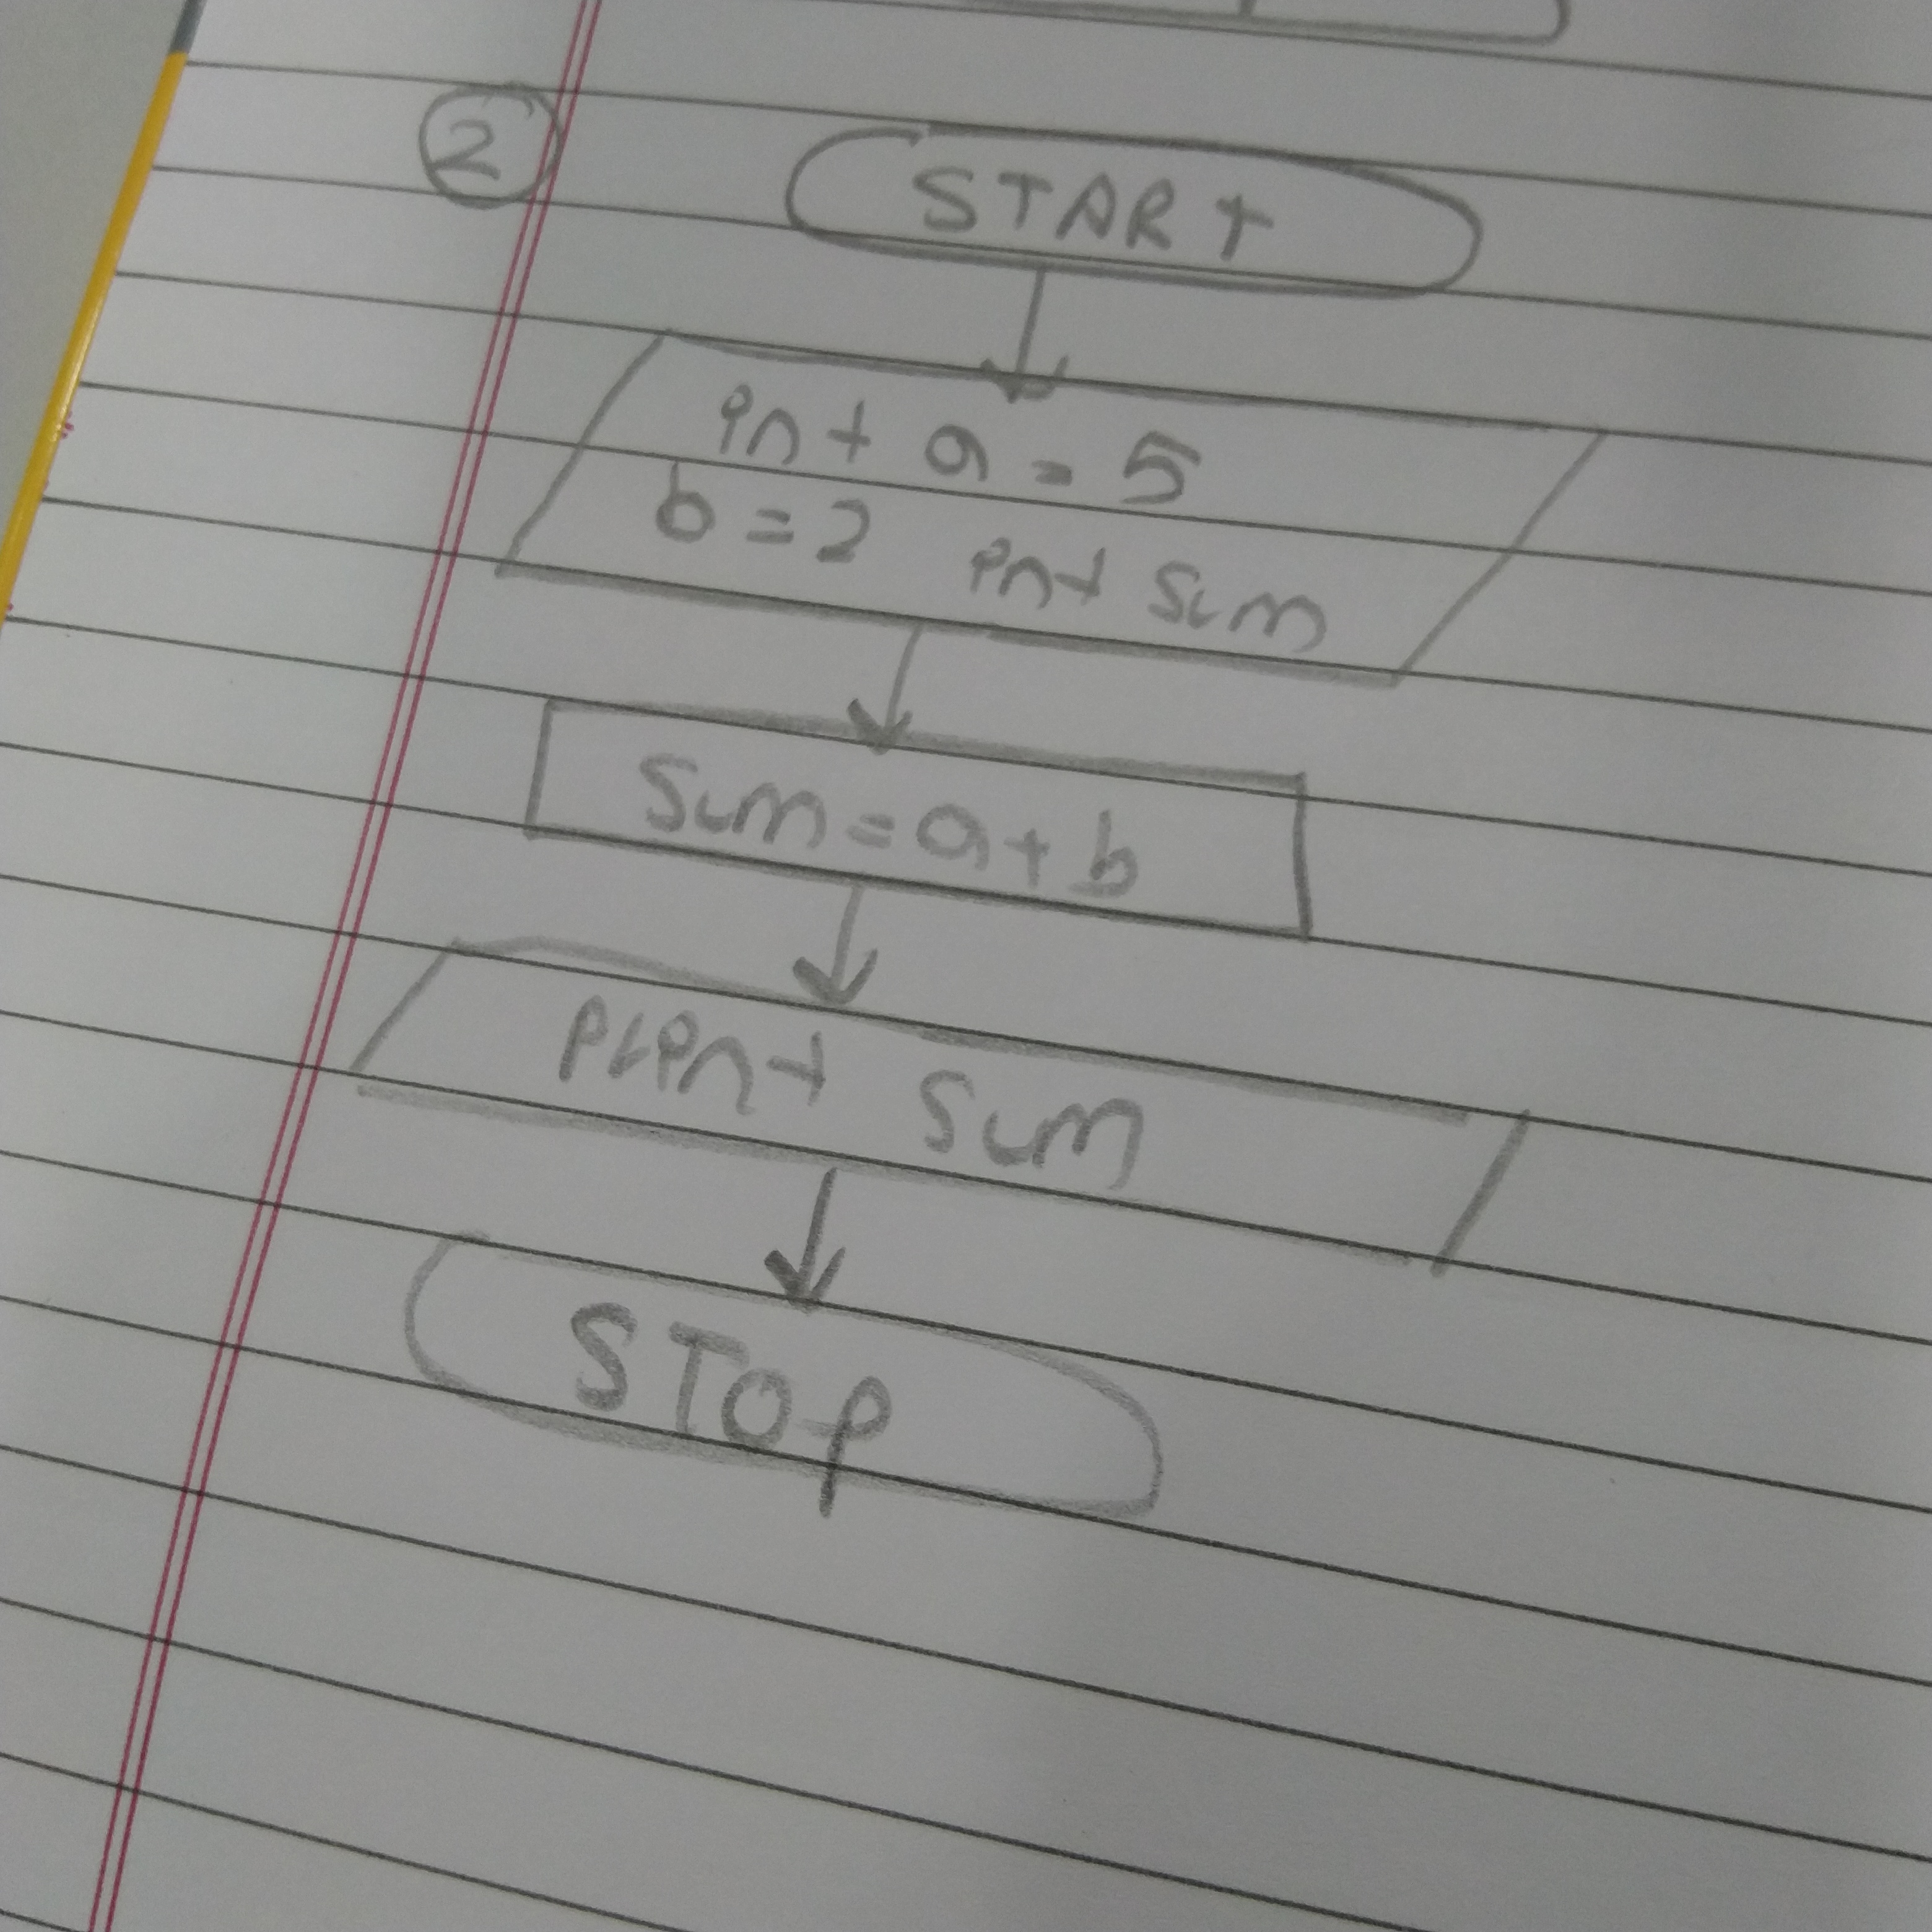 2
START
int a = 5
b = 2 int sum
sum = a + b
print sum
STOP